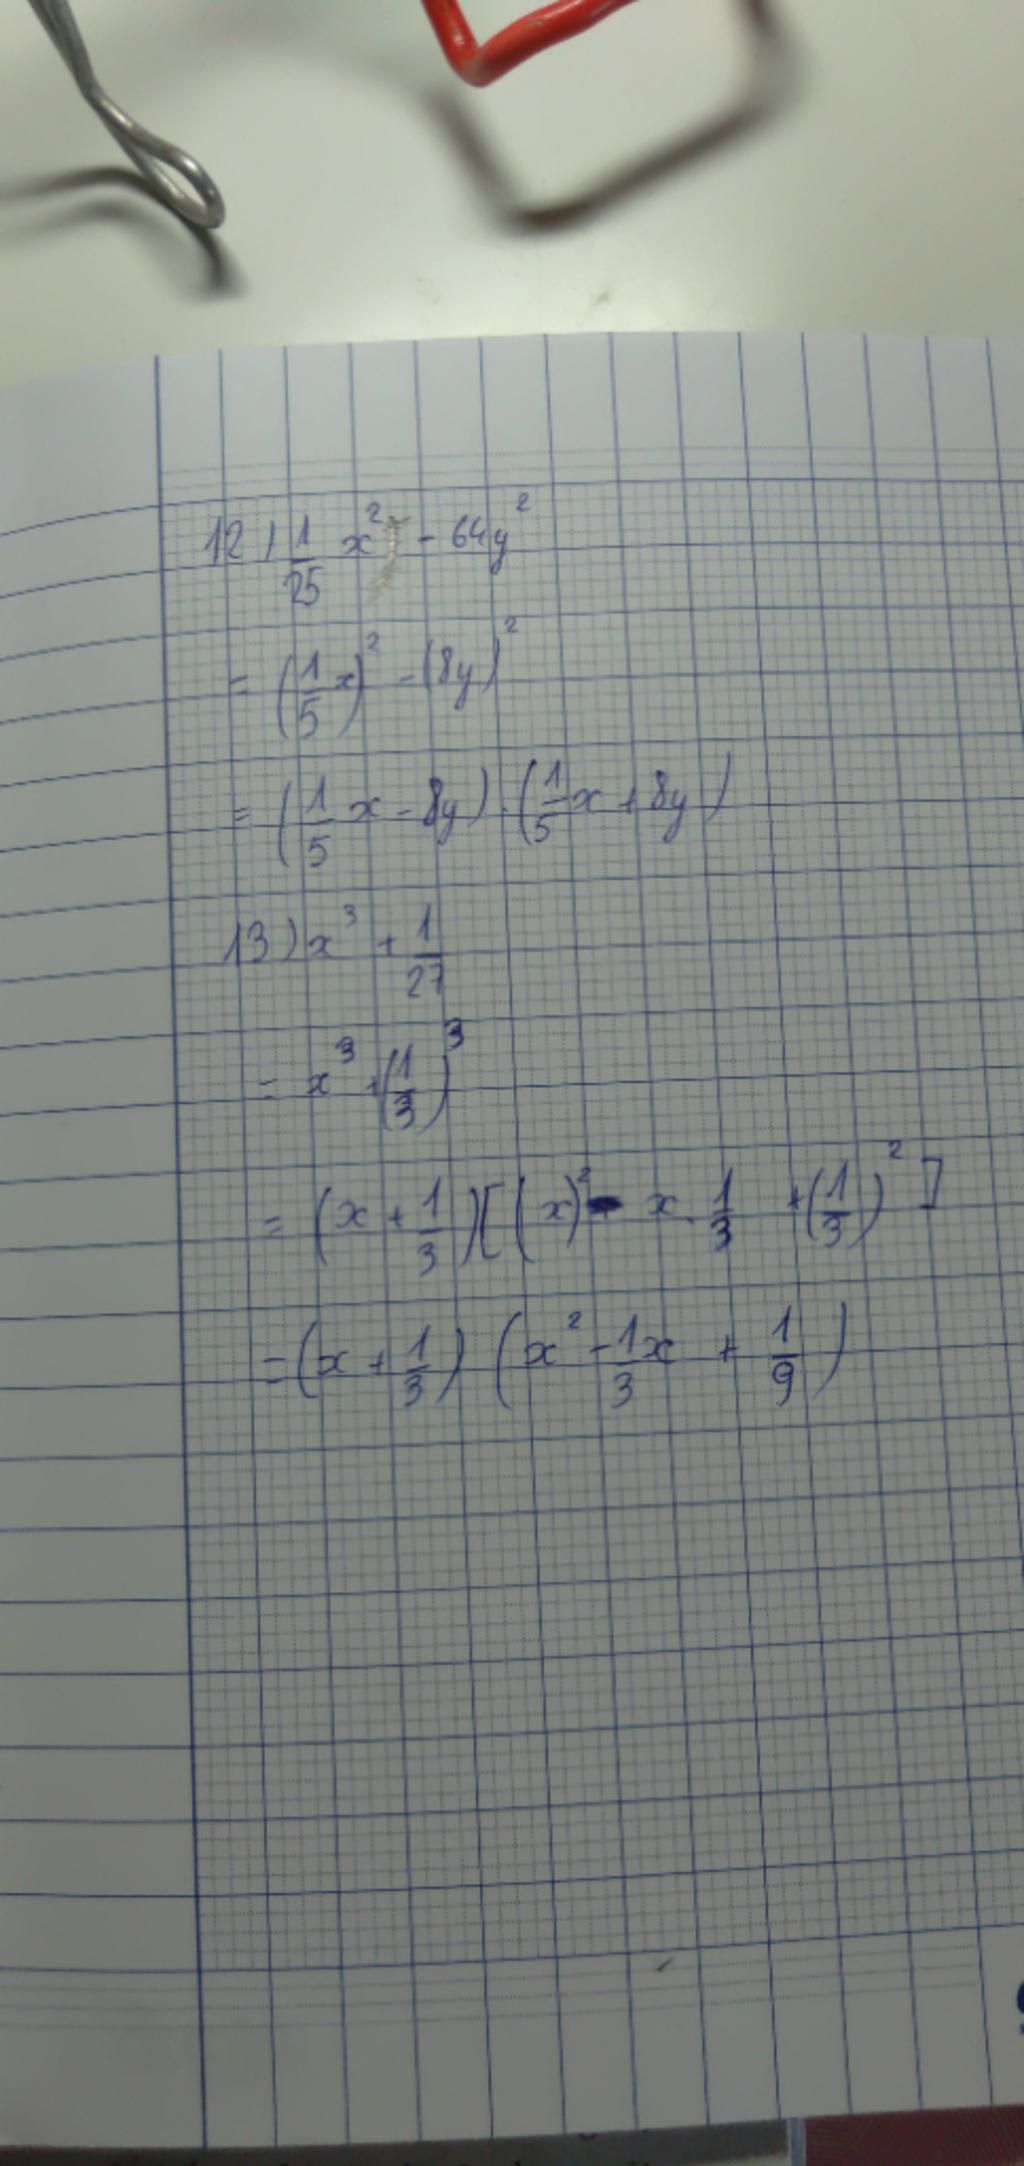 12) 1/25 x² - 64y²
= (1/5 x)² - (8y)²
= (1/5 x - 8y) . (1/5 x + 8y)
13) x³ + 1/27
= x³ + (1/3)³
= (x + 1/3)[(x)² - x . 1/3 + (1/3)²]
= (x + 1/3) (x² - 1/3 x + 1/9)